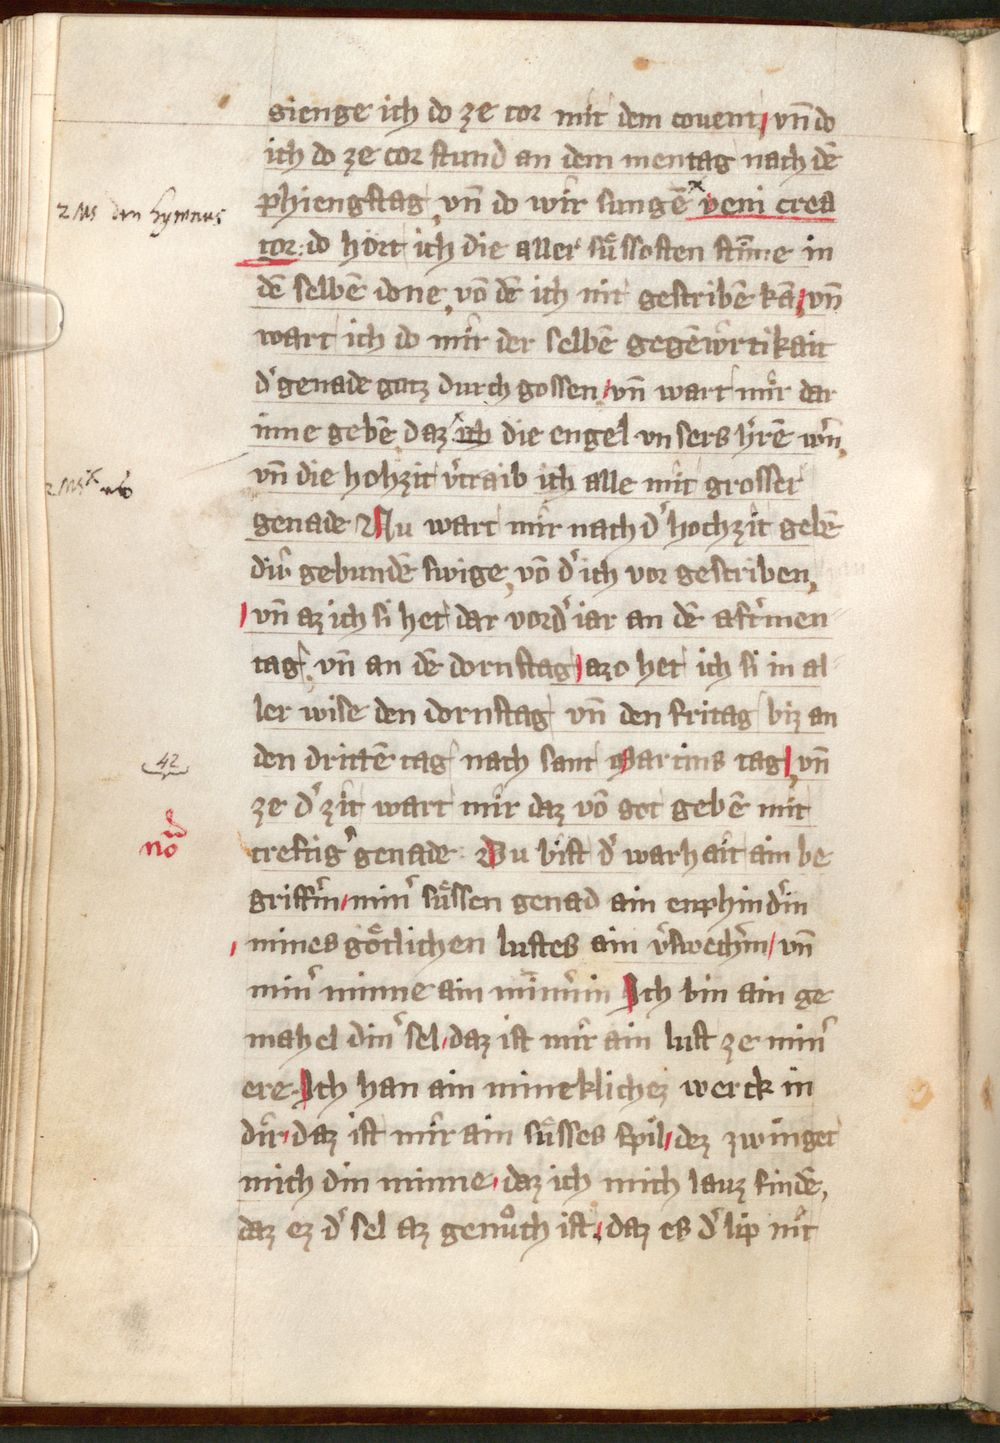 gienge ich do ze cor mit dem couent / vn̄ do
ich do ze cor stund an dem mentag nach dē
2 Ms den hymnus
phiengstag, vn̄ do wir sungē ˣ veni crea
tor: do hort ich die aller sůssosten stim̄e in
dē selbē done, vō dē ich nit gescribē kā / vn̄
wart ich do mit der selbē gegēwrtikait
d' genade gotz durch gossen / vn̄ wart mir dar
inne gebē daz ˣ ich die engel vnsers h'rē wrn,
2 Ms ˣ
vn̄ die hohzit v'traib ich alle mit grosser
genade Nu wart mir nach d' hochzit gebē
diu gebundē swige, vō d' ich vor gescriben,
/ vn̄ az ich si het dar vord' iar an dē aft'men
tag, vn̄ an dē dornstag / azo het ich si in al
ler wise den dornstag vn̄ den fritag biz an
den drittē tag nach sant Martins tag /, vn̄
42
ze d' zit wart mir daz vō got gebē mit
nō
creftig' genade. Du bist d' warhait ain be
griff'in / min' sůssen genad ain enphind'in
/ mines gӧtlichen lustes ain v'swech'in / vn̄
min' minne ain minn'in Ich bin ain ge
mahel din' sel / daz ist mir ain lust ze min'
ere. Ich han ain mineklichez werck in
dir / daz ist mir ain sůsses spil / dez zwinget
mich din minne / daz ich mich lauz finde,
daz ez d' sel az genůch ist / daz es d' lip nit